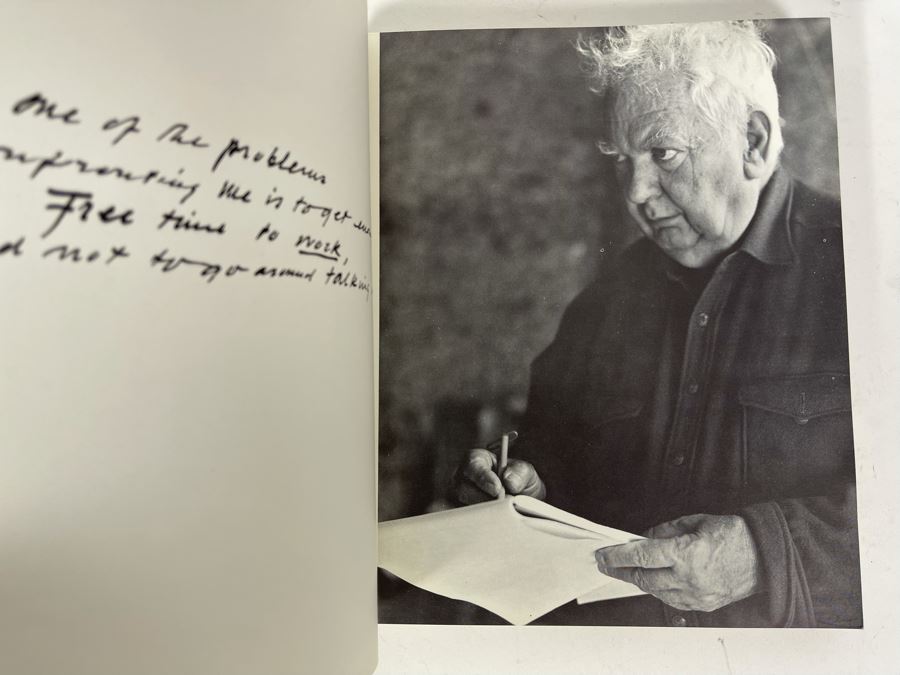 one of the problems
onfronting me is to get
Free time to work,
d not to go around talking